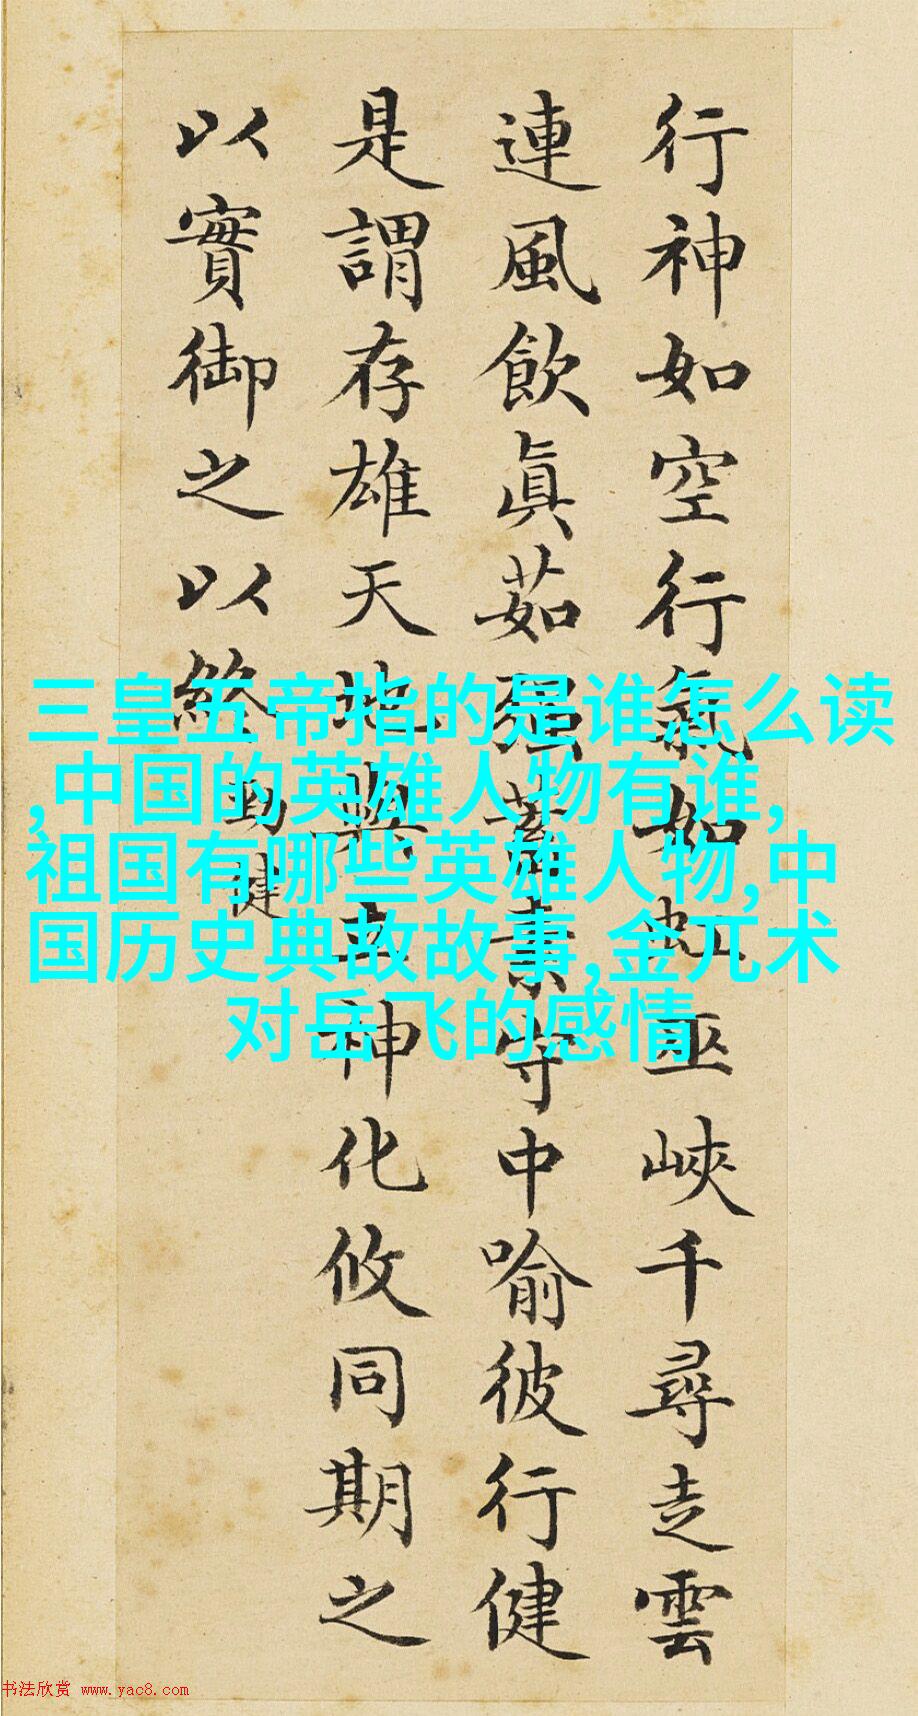 行神如空行氣如虹巫峽千尋走雲
連風飲眞茹强蓄素守中喻彼行健
是謂存雄天地與立神化攸同期之
以實御之以終 勁健
三皇五帝指的是谁怎么读
,中国的英雄人物有谁,
祖国有哪些英雄人物,中
国历史典故故事,金兀术
对岳飞的感情
书法欣赏 www.yac8.com